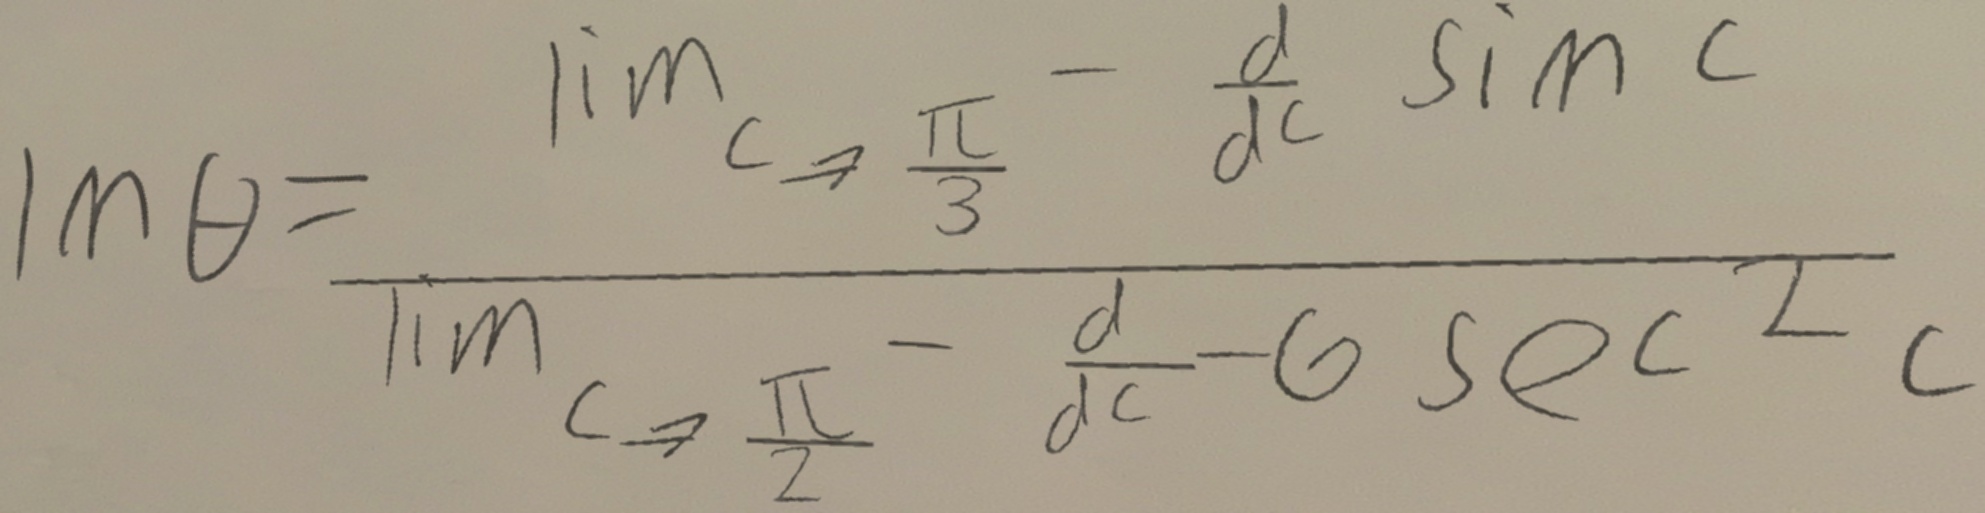 ln θ = \frac{\lim_{c \to \frac{\pi}{3}} - \frac{d}{dc} \sin c}{\lim_{c \to \frac{\pi}{2}} - \frac{d}{dc} -6 \sec^2 c}